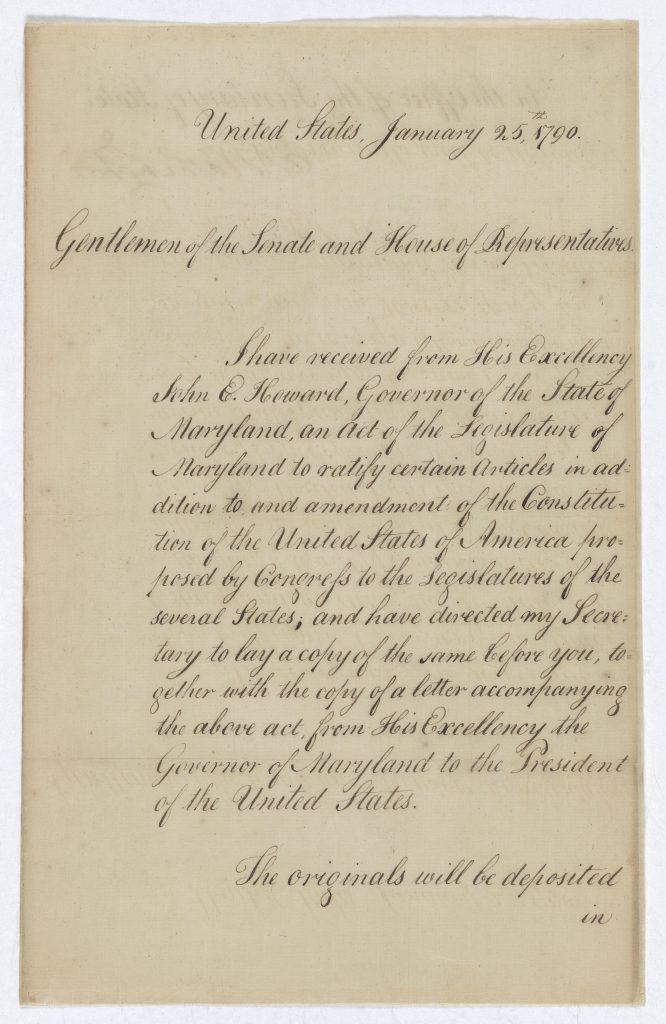 United States, January 25th, 1790.
Gentlemen of the Senate and House of Representatives.
I have received from His Excellency
John E. Howard, Governor of the State of
Maryland, an act of the Legislature of
Maryland to ratify certain Articles in ad=
dition to and amendment of the Constitu=
tion of the United States of America pro=
posed by Congress to the Legislatures of the
several States; and have directed my Secre=
tary to lay a copy of the same before you, to=
gether with the copy of a letter accompanying
the above act, from His Excellency the
Governor of Maryland to the President
of the United States.
The originals will be deposited
in